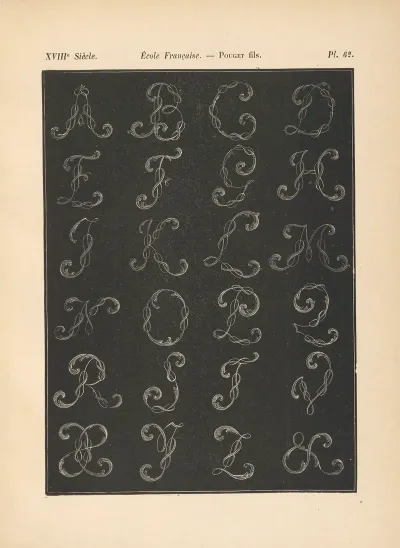 XVIIIᵉ Siècle. École Française. — Pouget fils. Pl. 62.
A B C D
E F G H
I K L M
N O P Q
R S T V
X Y Z &